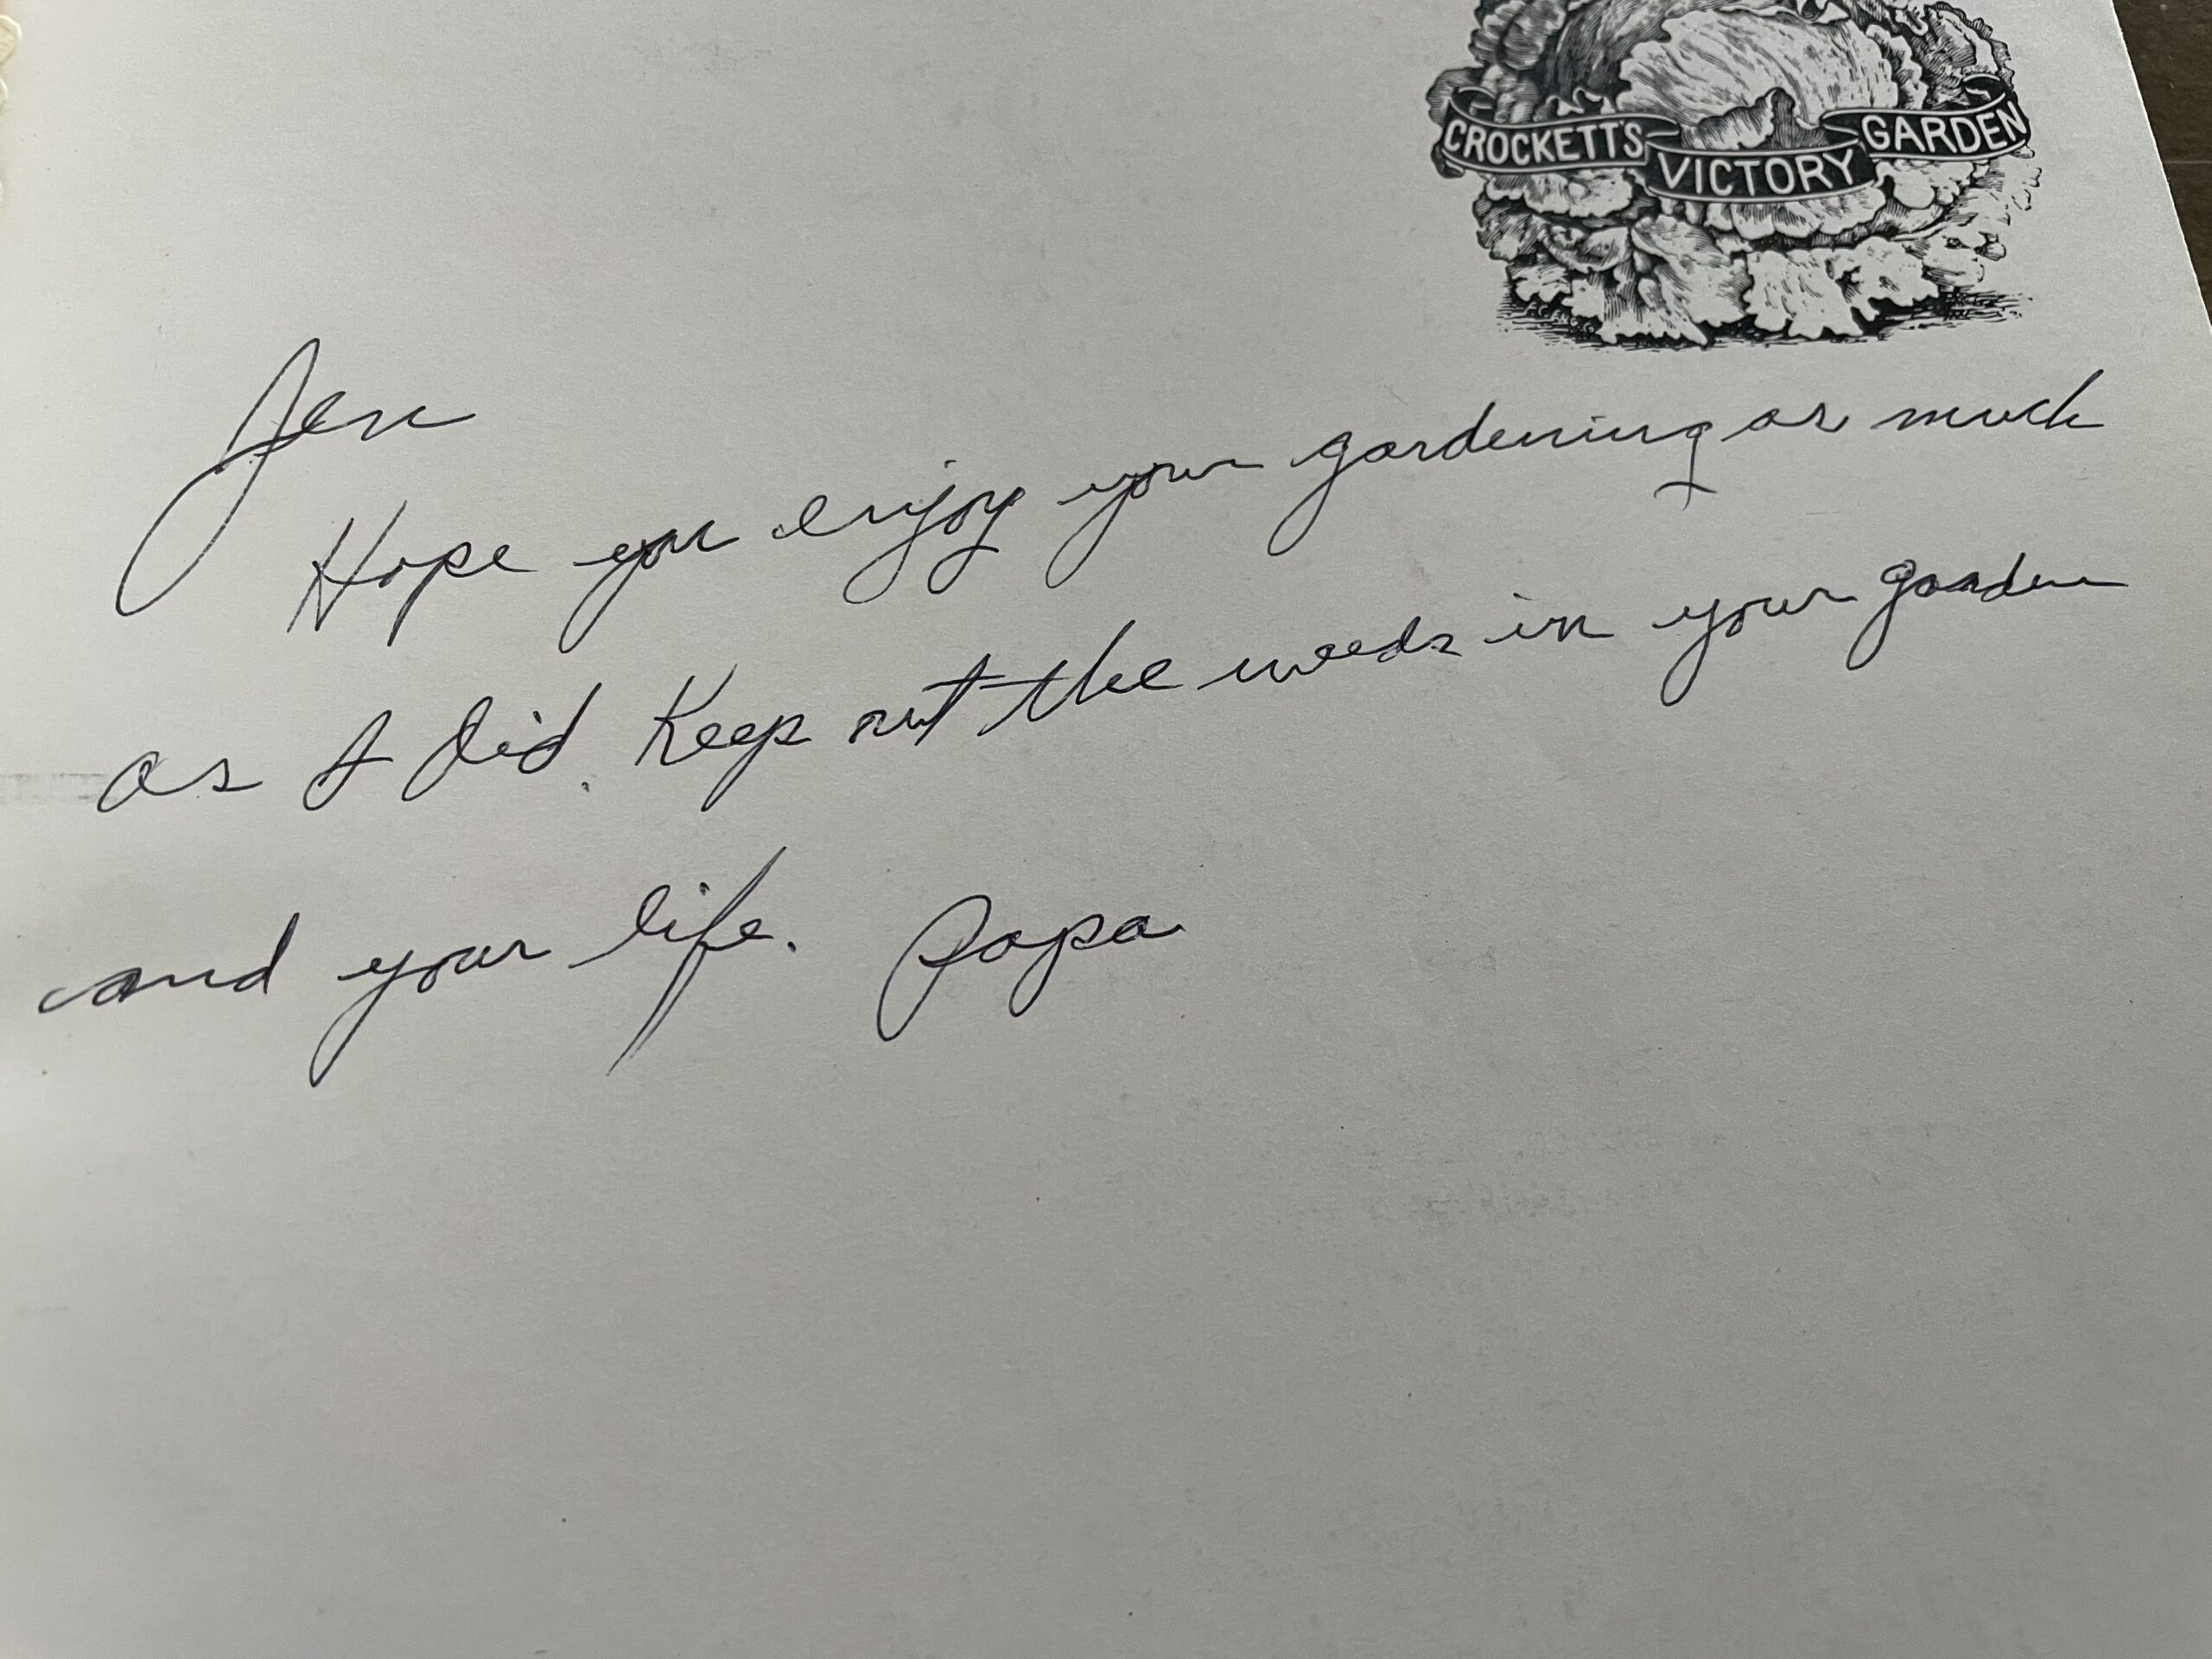 CROCKETT'S VICTORY GARDEN
Jen
Hope you enjoy your gardening as much
as I did. Keep out the weeds in your garden
and your life. Papa